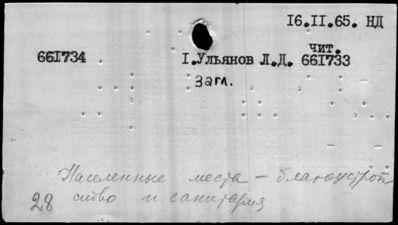 16.II.65. НД
чит.
661734 I.Ульянов Л.Д. 661733
загл.
Населенные места – благоустрой
ство и санитария
28